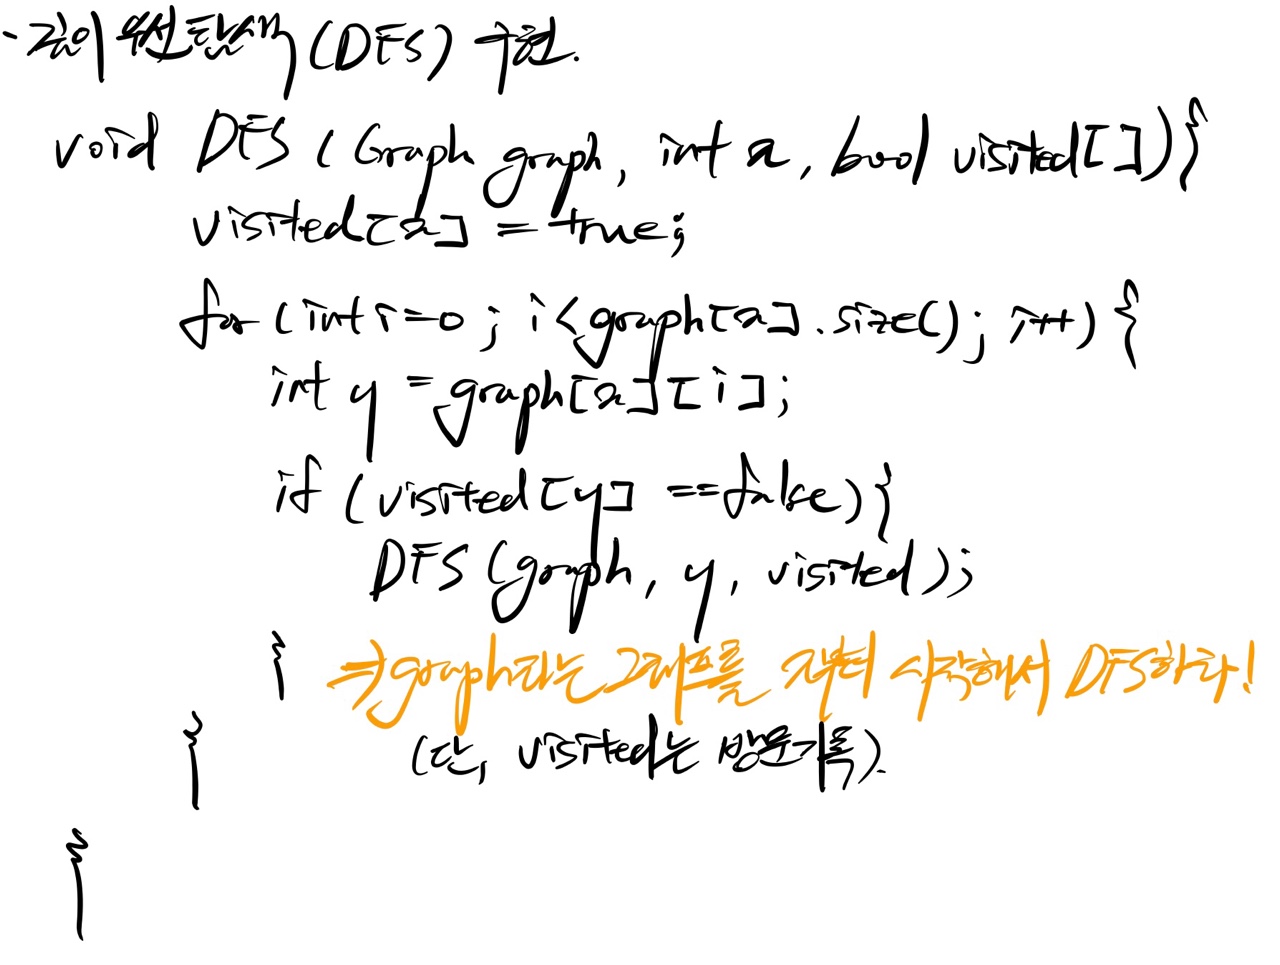 - 깊이 우선 탐색 (DFS) 구현.
void DFS (Graph graph, int x, bool visited[]){
visited[x] = true;
for (int i=0 ; i<graph[x].size(); i++) {
int y = graph[x][i];
if (visited[y] ==false){
DFS (graph, y, visited);
} ⇒graph라는 그래프를 x부터 시작해서 DFS하라!
} (단, visited는 방문기록).
}